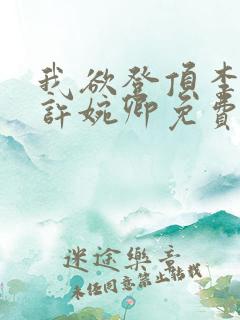 我欲登頂李
許婉卿免費
迷途樂章
未经同意禁止转载